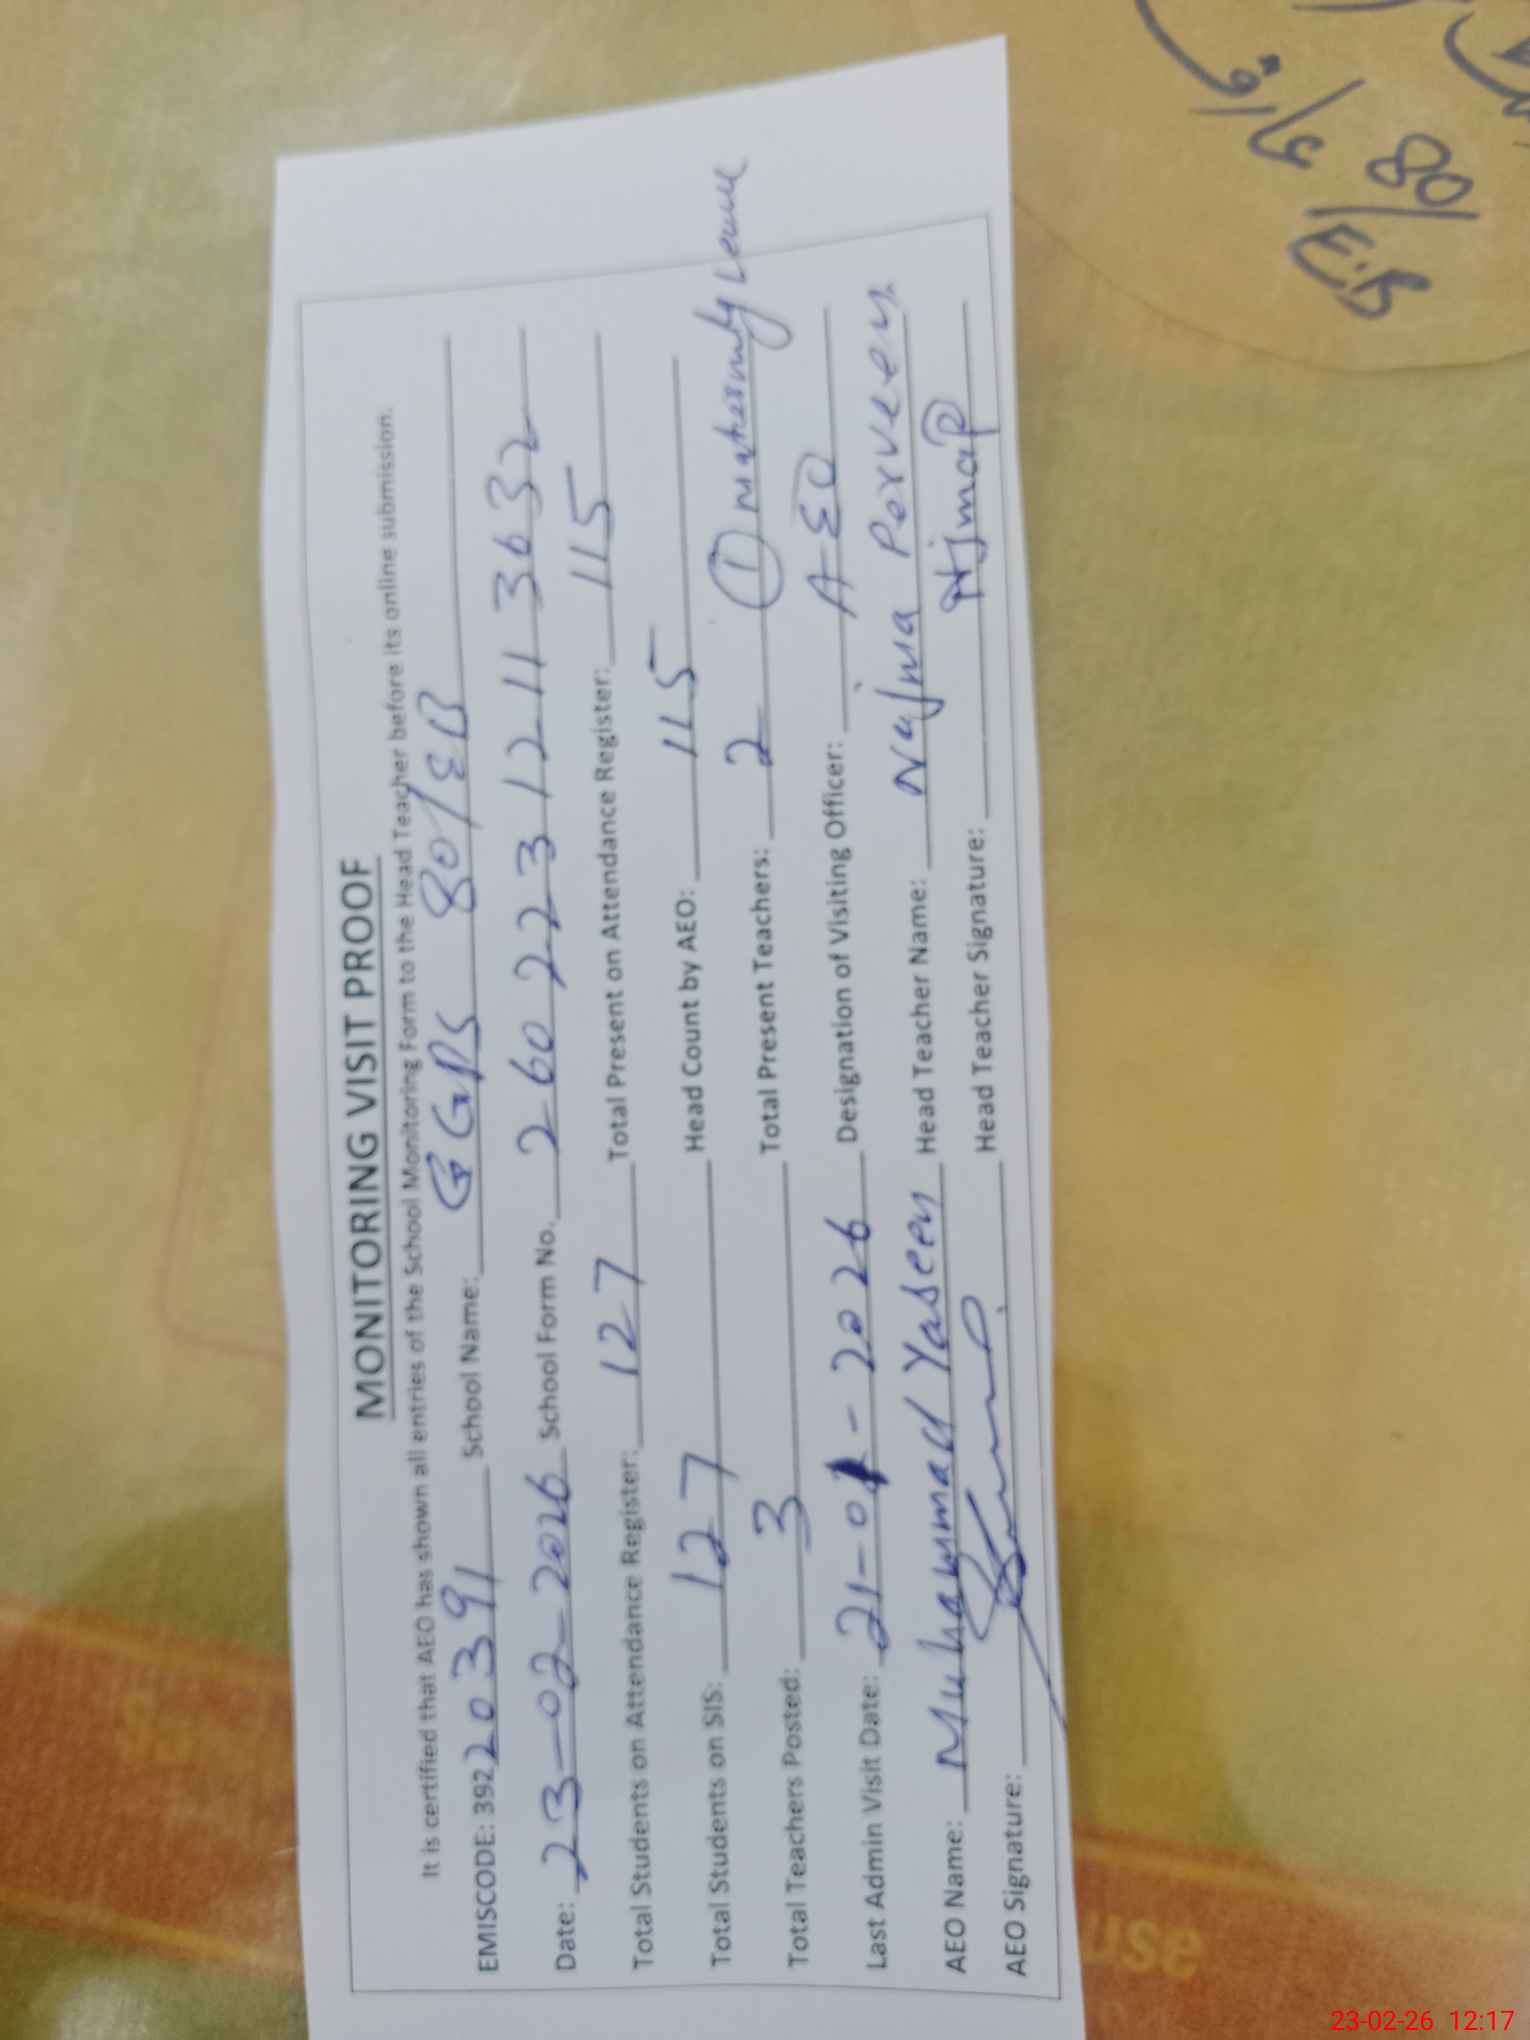 MONITORING VISIT PROOF
It is certified that AEO has shown all entries of the School Monitoring Form to the Head Teacher before its online submission.
EMISCODE: 39220391 School Name: GGPS 80/EB
Date: 23-02-2026 School Form No. 26022312113632
Total Students on Attendance Register: 127 Total Present on Attendance Register: 115
Total Students on SIS: 127 Head Count by AEO: 115
Total Teachers Posted: 3 Total Present Teachers: 2 (1) Maternity Leave
Last Admin Visit Date: 21-01-2026 Designation of Visiting Officer: AEO
AEO Name: Muhammad Yaseen Head Teacher Name: Najma Perveen
AEO Signature: Head Teacher Signature: NjmaP
80/E.B
use
23-02-26 12:17